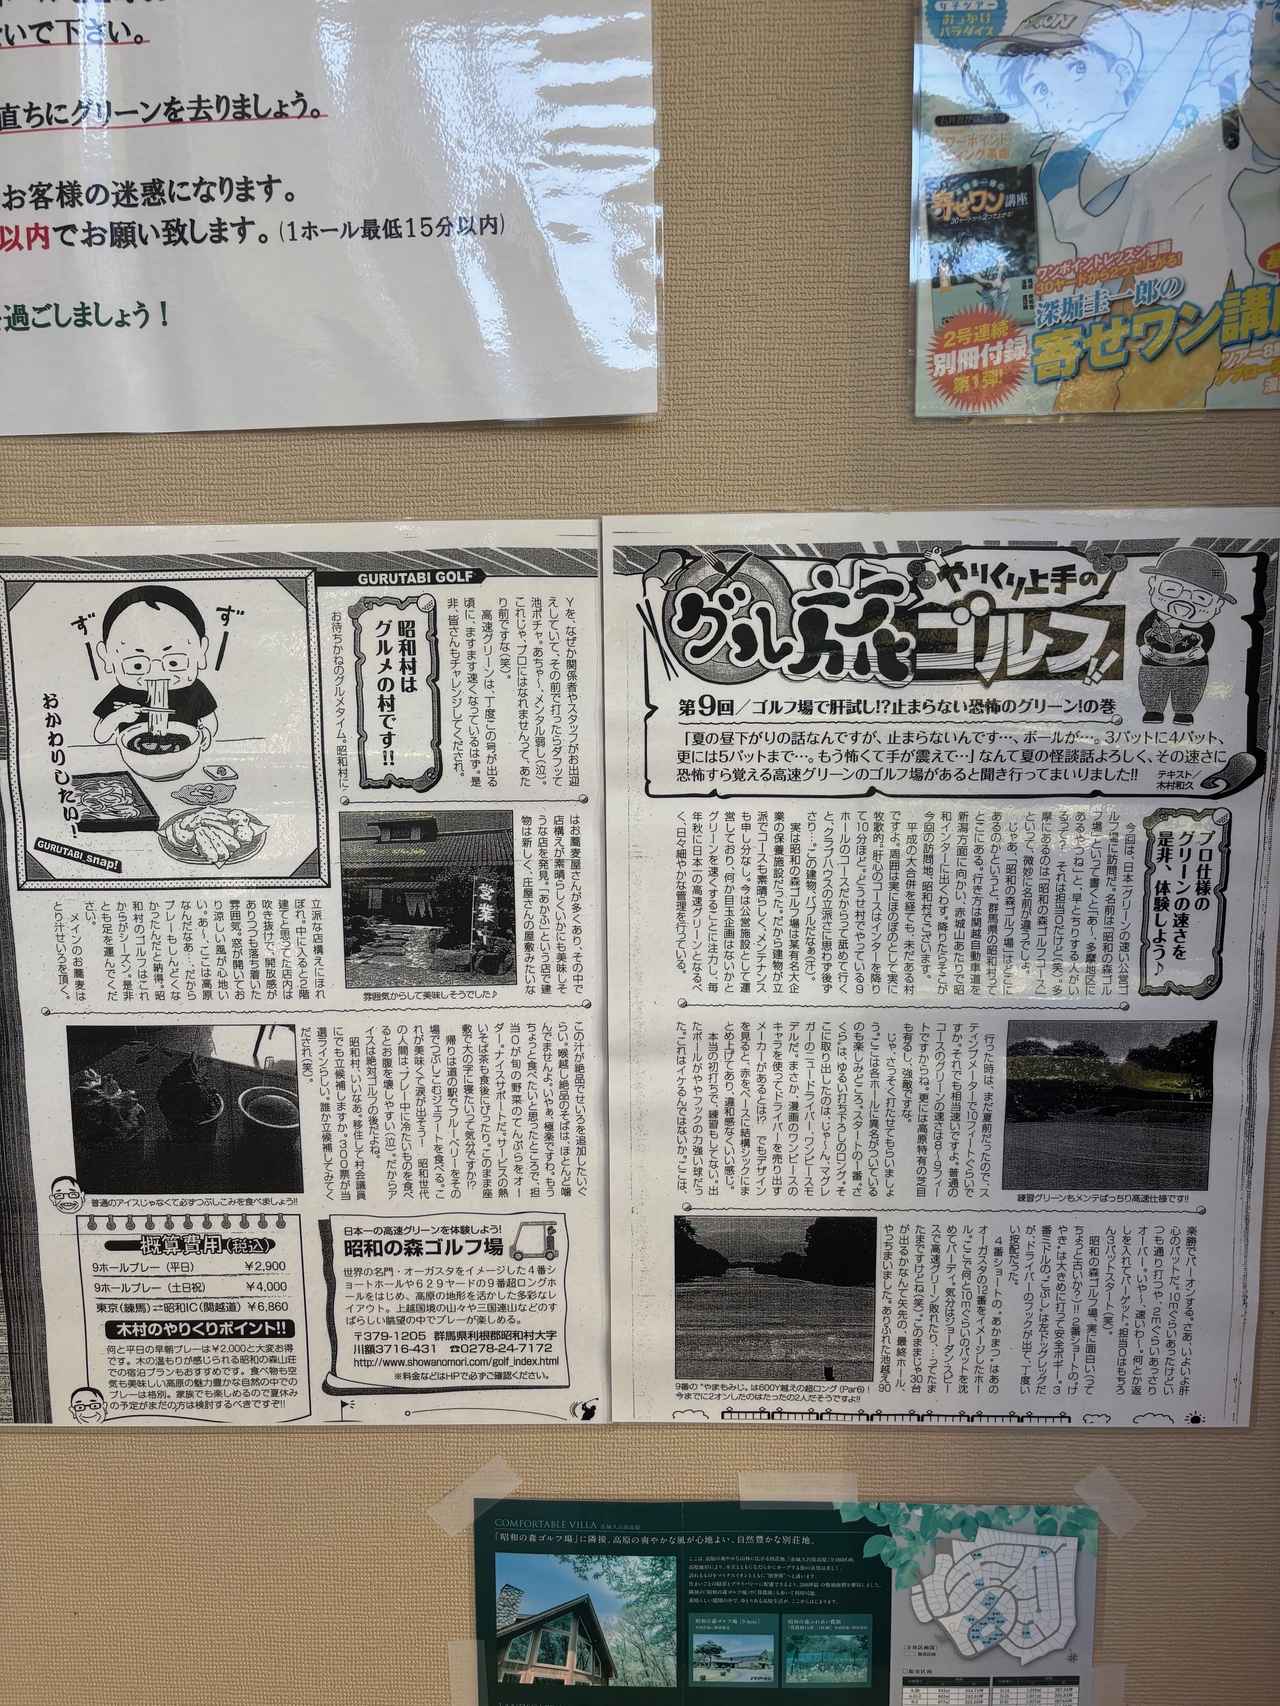 いで下さい。
直ちにグリーンを去りましょう。
お客様の迷惑になります。
以内でお願い致します。(1ホール最低15分以内)
過ごしましょう！
女子ツアー
おっかけ
パラダイス
寄せワン講座
ワンポイントレッスン漫画
30ヤードから2つで上がる!
深堀圭一郎の
寄せワン講座
2号連続
別冊付録
第1弾!
やりくり上手の
グル旅ゴルフ!!
第9回／ゴルフ場で肝試し!?止まらない恐怖のグリーン!の巻
「夏の昼下がりの話なんですが、止まらないんです…、ボールが…。3パットに4パット、
更には5パットまで…。もう怖くて手が震えて…」なんて夏の怪談話よろしく、その速さに
恐怖すら覚える高速グリーンのゴルフ場があると聞き行ってまいりました!!
テキスト／
木村和久
プロ仕様の
グリーンの速さを
是非、体験しよう♪
今回は、日本一グリーンの速い公営ゴ
ルフ場に訪問だ。名前は「昭和の森ゴル
フ場」といって書くと「あ〜、多摩地区に
あるやつね」と、早とちりする人がい
るって？ それは担当Oだけど(笑)。多
摩にあるのは「昭和の森ゴルフコース」
といって、微妙に名前が違うでしょ。
じゃあ、「昭和の森ゴルフ場」はどこに
あるのかというと、群馬県の昭和村って
とこにある。行き方は関越自動車道を
新潟方面に向かい、赤城山あたりで昭
和インターに出くわす。降りたらそこが
今回の訪問地、昭和村でございます。
平成の大合併を経ても、未だある村
ですよ。周囲は実にほのぼのとして実に
牧歌的。肝心のコースはインターを降り
て10分ほど。どうせ村でやっている9
ホールのコースだからって舐めて行く
と、クラブハウスの立派さに思わず後ず
さり…。この建物、バブルだなぁ(汗)。
実は昭和の森ゴルフ場は某有名大企
業の保養施設だった。だから建物が立
派でコースも素晴らしく、メンテナンス
も申し分なし。今は公営施設として運
営しており、何か目玉企画はないかと
グリーンを速くすることに注力し、毎
年秋に日本一の高速グリーンとなるべ
く、日々細やかな管理を行っている。
行った時は、まだ夏前だったので、ス
ティンプメーターで10フィートぐらいで
すか。それでも相当速いですよ。普通の
コースのグリーンの速さは8〜9フィー
トですからね。更には高原特有の芝目
も有るし、強敵ですな。
じゃ、さっそく打たせてもらいましょ
う。ここは各ホールに異名がついている
のも楽しみどころ。スタートの1番。さ
くらしは、ゆるい打ち下ろしのロング。そ
こに取り出したのは、じゃーん、マグレ
ガーのニュードライバー、ワンピースモ
デルだ。まさか、漫画のワンピースの
キャラを使ってドライバーを売り出す
メーカーがあるとは!? でもデザイン
を見ると、赤をベースに結構シックにま
とめ上げてあり、違和感なくいい感じ。
本当の初打ちで、練習もしてない。出
たボールがややフックの力強い球だっ
た。「これはイケるんではないか。」こは、
練習グリーンもメンテばっちり高速仕様です!!
楽勝でパーオンする。さあ、いよいよ肝
心のパットだ。10mぐらいあったけどい
つも通り打つや、2mぐらいあっさり
オーバー。いや〜、速いわー。何とか返
しを入れてパーゲット。担当Oはもちろ
ん3パットスタート(笑)。
昭和の森ゴルフ場、実に面白いって
ちょっと古いか？!! 2番ショートの「け
やき」は大きめに打って安全ボギー。3
番ミドルの「こぶし」は左ドッグレッグだ
が、ドライバーのフックが出て、丁度い
い按配だった。
4番ショートの「あかまつ」はあの
オーガスタの12番をイメージしたホー
ル。ここで何と10mぐらいのパットを沈
めてバーディ。気分はジョーダン・スピー
スで高速グリーン敗れたり…ってたま
たまですけどね(笑)。このままじゃ30台
が出るかなんて矢先の、最終ホール、
やっちまいました。ありふれた池越え90
9番の“やまもみじ。は600Y越えの超ロング(Par6)！
今までに2オンしたのはたったの2人だそうですよ!!
GURUTABI GOLF
Yを、なぜか関係者やスタッフがお出迎
えしていて、その前で打ったらダフッて
池ポチャ。あちゃー、メンタル弱し(泣)。
これじゃ、プロにはなれませんって、あた
り前ですな(笑)。
高速グリーンは、丁度この号が出る
頃に、ますます速くなっているはず。是
非、皆さんもチャレンジしてください。
昭和村は
グルメの村です!!
お待ちかねのグルメタイム。昭和村に
はお蕎麦屋さんが多くあり、その中で
店構えが素晴らしくいかにも美味しそ
うな店を発見。「あかぶ」という店で建
物は新しく、庄屋さんの屋敷みたいな
営業中
雰囲気からして美味しそうでした♪
ず
ず
おかわりしたい！
GURUTABI snap!
立派な店構えにほれ
ぼれ。中に入ると2階
建てと思ってた店内は
吹き抜けで、開放感が
ありつつも落ち着いた
雰囲気。窓が開いてお
り涼しい風が心地い
い。あ〜、ここは高原
なんだなぁ…だから
プレーもしんどくな
かったんだと納得。昭
和村のゴルフはこれ
からがシーズン。是非
とも足を運んでくだ
さい。
メインのお蕎麦は、
とり汁せいろを頂く。
この汁が絶品でせいろを追加したいぐ
らい。喉越し絶品のそばは、ほとんど噛
んでませんよ。いやぁ、極楽ですわ。もう
ちょっと食べたいと思ったところで、担
当Oが旬の野菜のてんぷらをオー
ダー。ナイスサポートだ。サービスの熱
いそば茶も食後にぴったり。このまま座
敷で大の字に寝たいって気分ですか!?
帰りは道の駅でブルーベリーをその
場でつぶしこむジェラートを食べる。こ
れが美味くて涙が出そう！ 昭和世代
の人間は、プレー中に冷たいものを食べ
るとお腹を壊しやすい(泣)。だからア
イスは絶対ゴルフの後だよね。
昭和村、いいなあ。移住して村会議員
にでも立候補しますか。300票が当
選ラインらしい。誰か立候補してみてく
だされ(笑)。
普通のアイスじゃなくて必ずつぶしこみを食べましょ!!
概算費用(税込)
9ホールプレー（平日） ¥2,900
9ホールプレー（土日祝） ¥4,000
東京（練馬）⇄昭和IC（関越道） ¥6,860
木村のやりくりポイント!!
何と平日の早朝プレーは¥2,000と大変お得
です。木の温もりが感じられる昭和の森山荘
での宿泊プランもおすすめです。食べ物も空
気も美味しい高原の魅力豊かな自然の中での
プレーは格別。家族でも楽しめるので夏休み
の予定がまだの方は検討するべきですぞ!!
日本一の高速グリーンを体験しよう!
昭和の森ゴルフ場
世界の名門・オーガスタをイメージした4番シ
ョートホールや629ヤードの9番超ロングホ
ールをはじめ、高原の地形を活かした多彩なレ
イアウト。上越国境の山々や三国連山などのす
ばらしい眺望の中でプレーが楽しめる。
〒379-1205 群馬県利根郡昭和村大字
川額3716-431 ☎0278-24-7172
http://www.showanomori.com/golf_index.html
※料金などはHPで必ずご確認ください。
COMFORTABLE VILLA
「昭和の森ゴルフ場」に隣接。高原の爽やかな風が心地よい、自然豊かな別荘地。